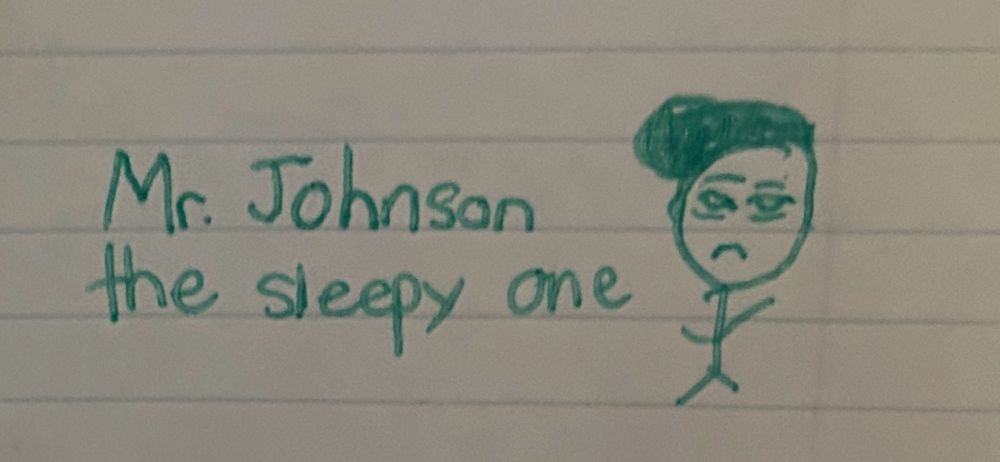 Mr. Johnson
the sleepy one